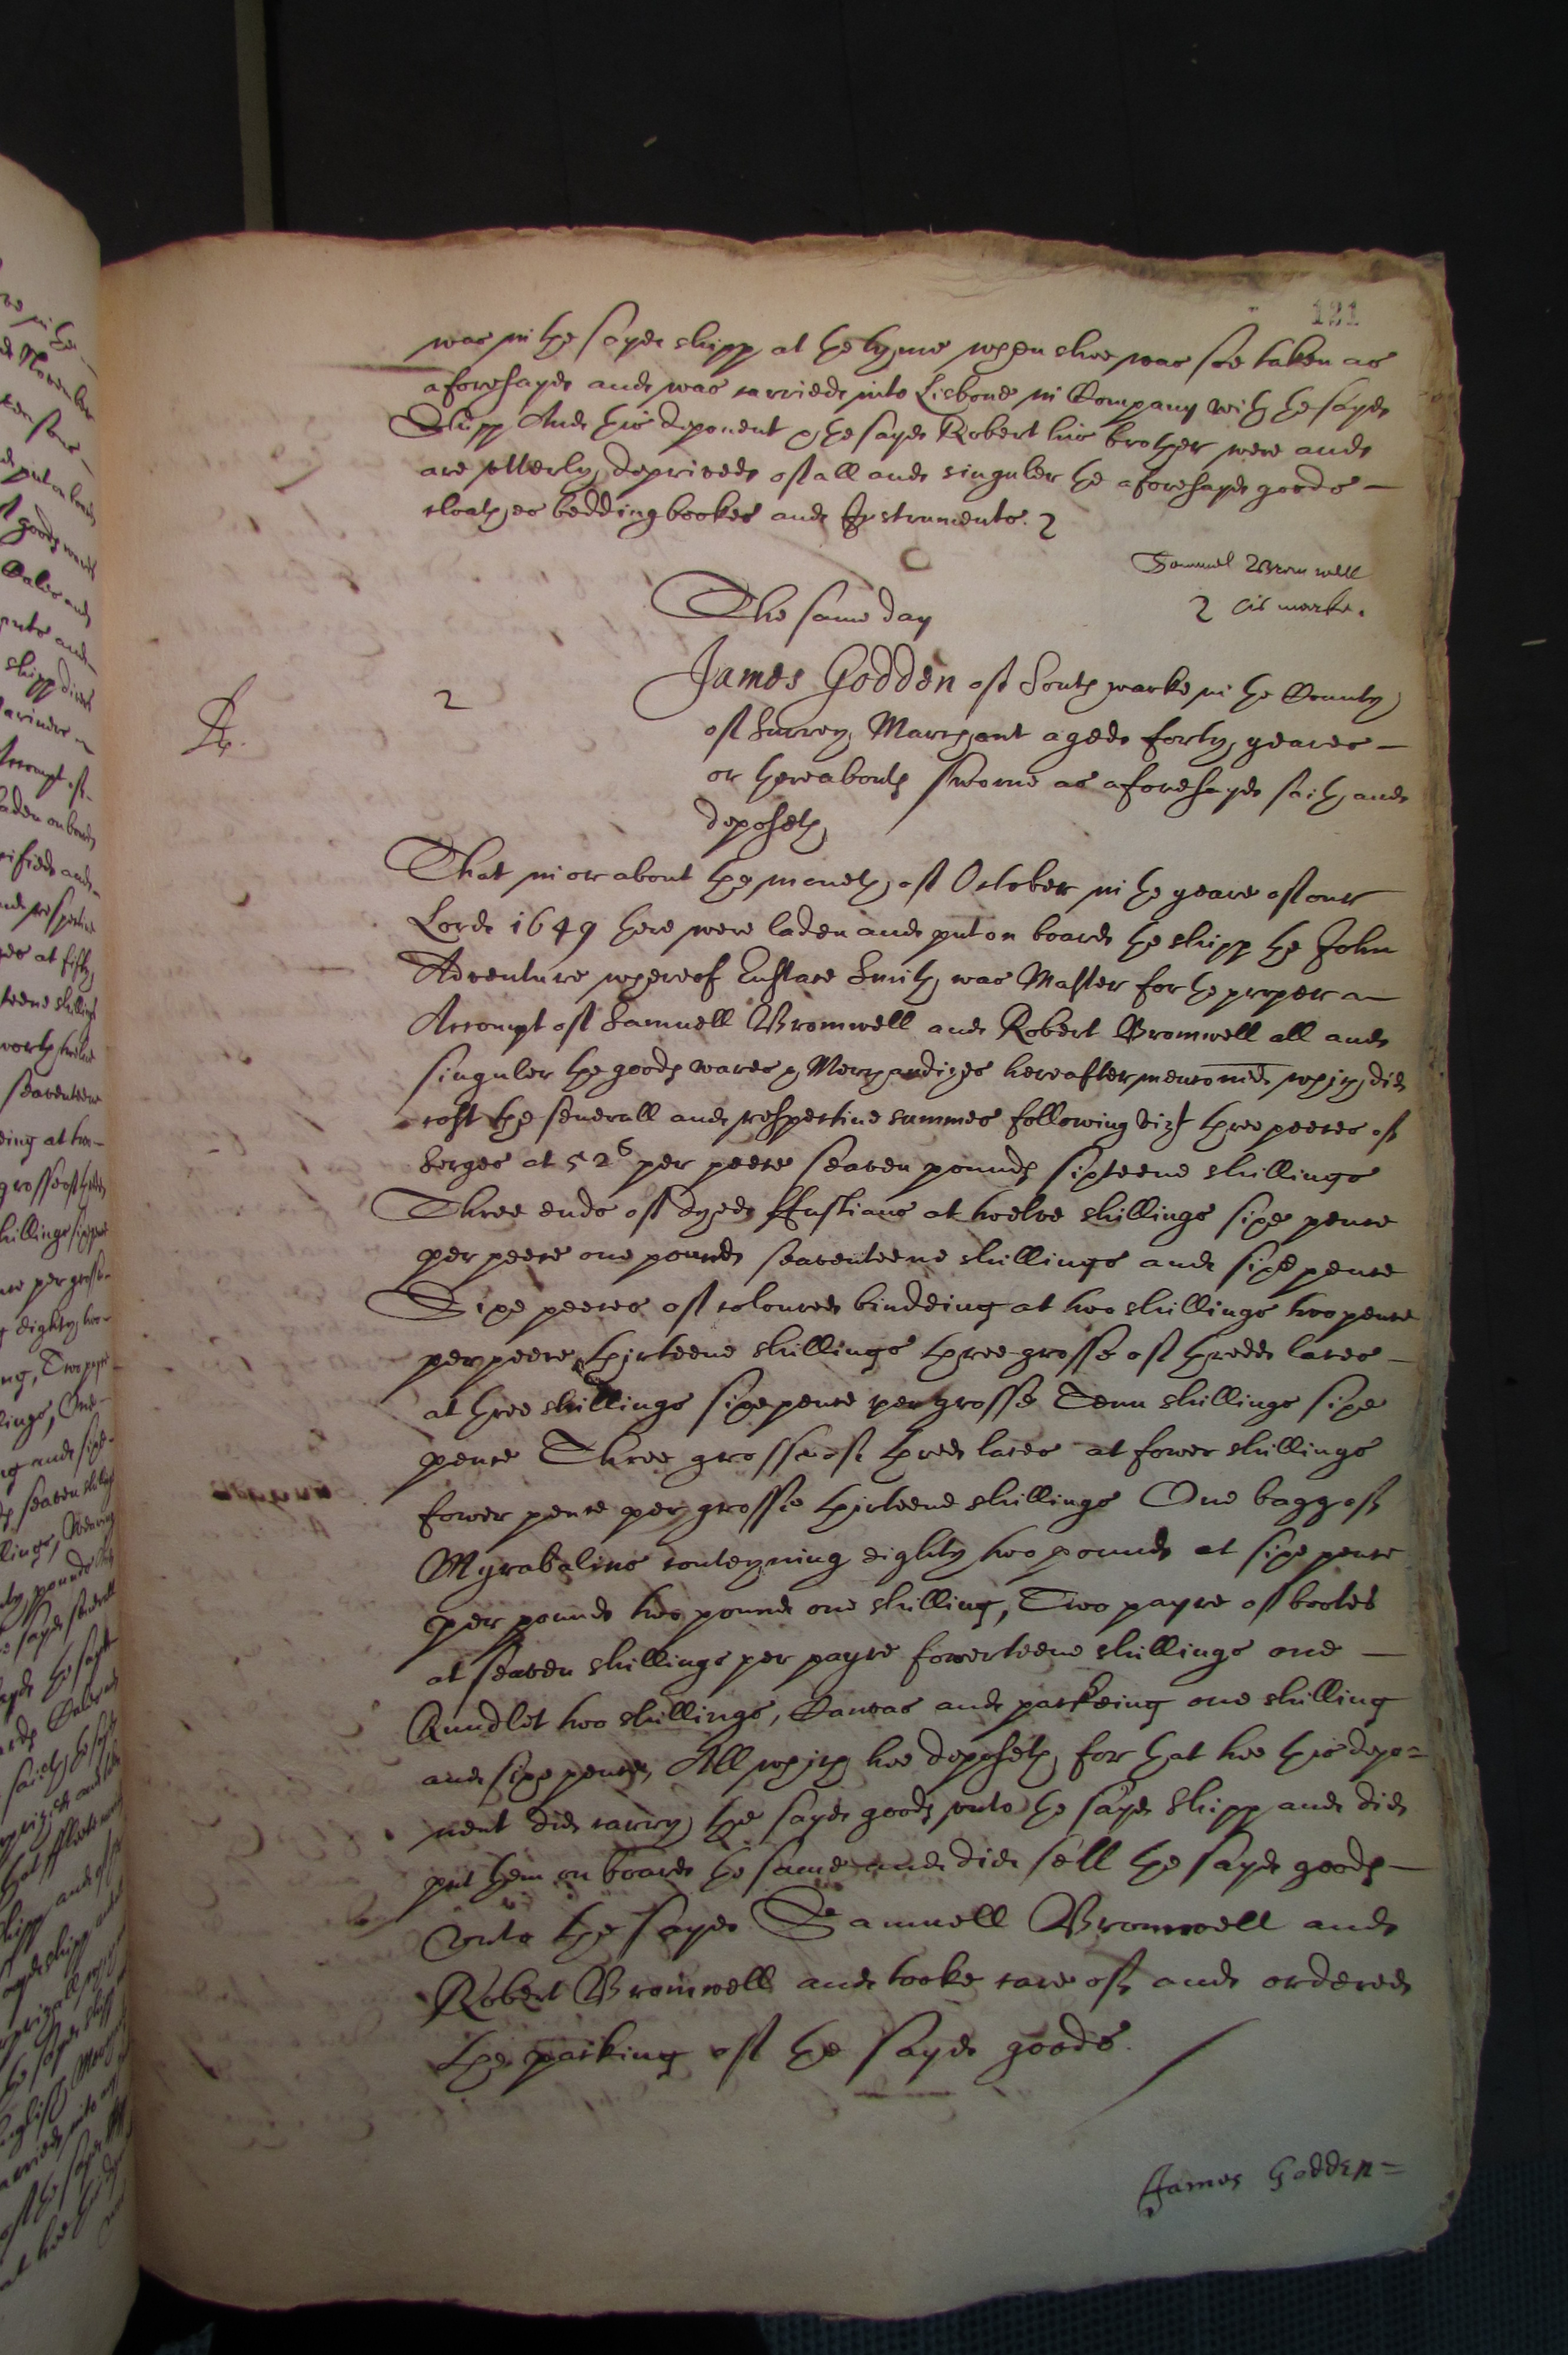 121
was in the sayde shipp at the tyme when shee was soe taken as
aforesayde and was carried into Lisbone in Company with the sayde
Shipp And this deponent & the sayde Robert his brother were and
are utterly deprived of all and singuler the aforesayde goods –
cloathes bedding bookes and Instruments. 2
Samuel Bromwell
2 his marke.
The same day
2
James Godden of Southwarke in the County
of Surrey Marchant aged forty yeares –
or thereabouts sworne as aforesayde saith and
deposeth
That in or about the moneth of October in the yeare of our
Lord 1649 there were laden and put on board the shipp the John
Adventure whereof Eustace Smith was Master for the proper a–
Accompt of Samuell Bromwell and Robert Bromwell all and
singuler the goods wares & Merchandizes hereafter menconied which did
cost the severall and respective summes following vizt three peeces of
Serges at 52s per peece seaven pounds sixteene shillings
Three ends of dyed ffustians at twelve shillings sixe pence
per peece one pound seaventeene shillings and sixe pence
Sixe peeces of coloured bindeing at two shillings two pence
per peece thirteene shillings three grosse of thredd laces –
at three shillings sixe pence per grosse Tenn shillings sixe
pence Three grosse of thred laces at fower shillings
fower pence per grosse thirteene shillings One bagg of
Myrabalins conteyning eighty two pounds at sixe pence
per pound two pound one shilling, Two payre of bootes
at seaven shillings per payre fowerteene shillings one –
Rundlet two shillings, Canvas and packeing one shilling
and sixe pence, All which hee deposeth for that hee this depo=
nent did carry the sayde goods unto the sayde Shipp and did
put them on board the same and did sell the sayde goods –
unto the sayde Samuell Bromwell and
Robert Bromwell and tooke care of and ordered
the packing of the sayde goods.
James Godden=